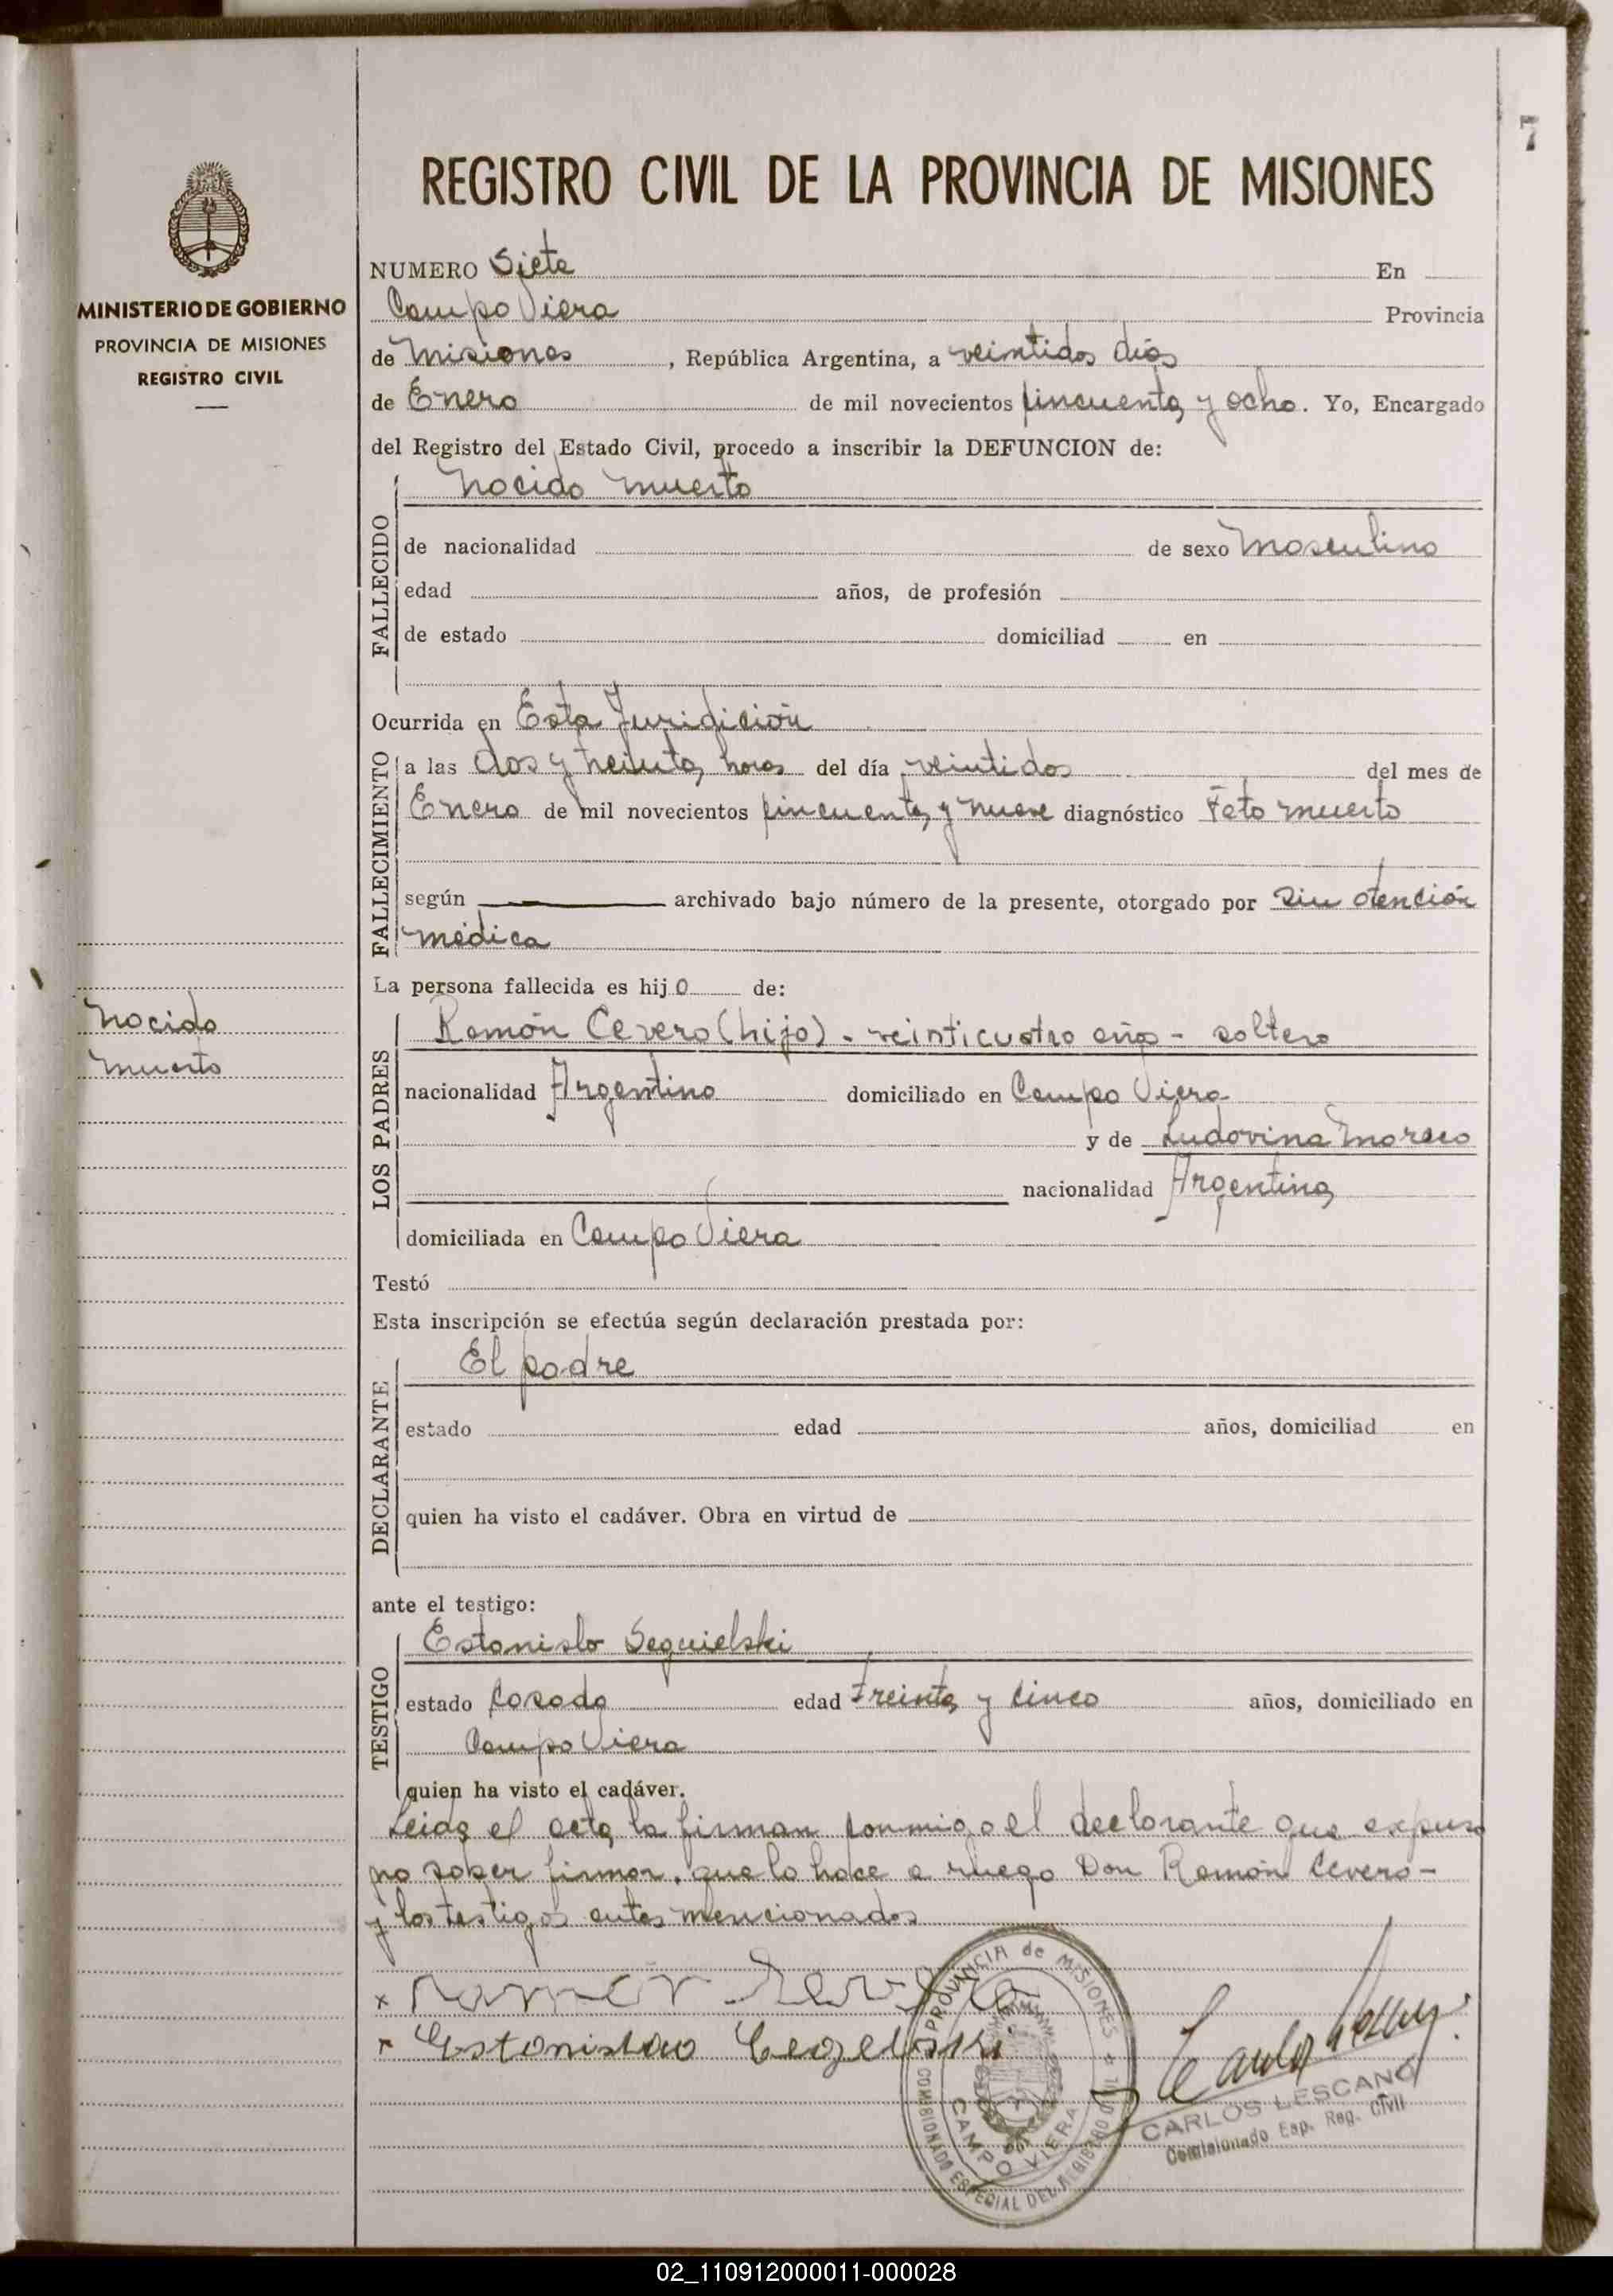 7
REGISTRO CIVIL DE LA PROVINCIA DE MISIONES
MINISTERIO DE GOBIERNO
PROVINCIA DE MISIONES
REGISTRO CIVIL
NUMERO Siete En
Campo Viera Provincia
de Misiones, República Argentina, a veintidos dias
de Enero de mil novecientos cincuenta y ocho. Yo, Encargado
del Registro del Estado Civil, procedo a inscribir la DEFUNCION de:
FALLECIDO
Nacido muerto
de nacionalidad de sexo Masculino
edad años, de profesión
de estado domiciliad en
Ocurrida en Esta Juridición
FALLECIMIENTO
a las dos y treinta horas del día veintidos del mes de
Enero de mil novecientos cincuenta y nueve diagnóstico Feto muerto
según archivado bajo número de la presente, otorgado por Sin atención
médica
La persona fallecida es hijo de:
Nacido
muerto
LOS PADRES
Ramón Cevero (hijo) - veinticuatro años - soltero
nacionalidad Argentino domiciliado en Campo Viera
y de Ludovina
nacionalidad Argentina
domiciliada en Campo Viera
Testó
Esta inscripción se efectúa según declaración prestada por:
DECLARANTE
El padre
estado edad años, domiciliad en
quien ha visto el cadáver. Obra en virtud de
ante el testigo:
TESTIGO
Estanislao Seguielski
estado Casado edad treinta y cinco años, domiciliado en
Campo Viera
quien ha visto el cadáver.
Leida el acta la firman conmigo el declarante que expuso
no saber firmar, que lo hace a ruego Don Ramón Cevero -
y los testigos antes mencionados
x Ramon
x Estanislao
PROVINCIA de MISIONES
COMISIONADO ESPECIAL DEL REGISTRO CIVIL
CAMPO VIERA
CARLOS LESCANO
Comisionado Esp. Reg. Civil
02_110912000011-000028